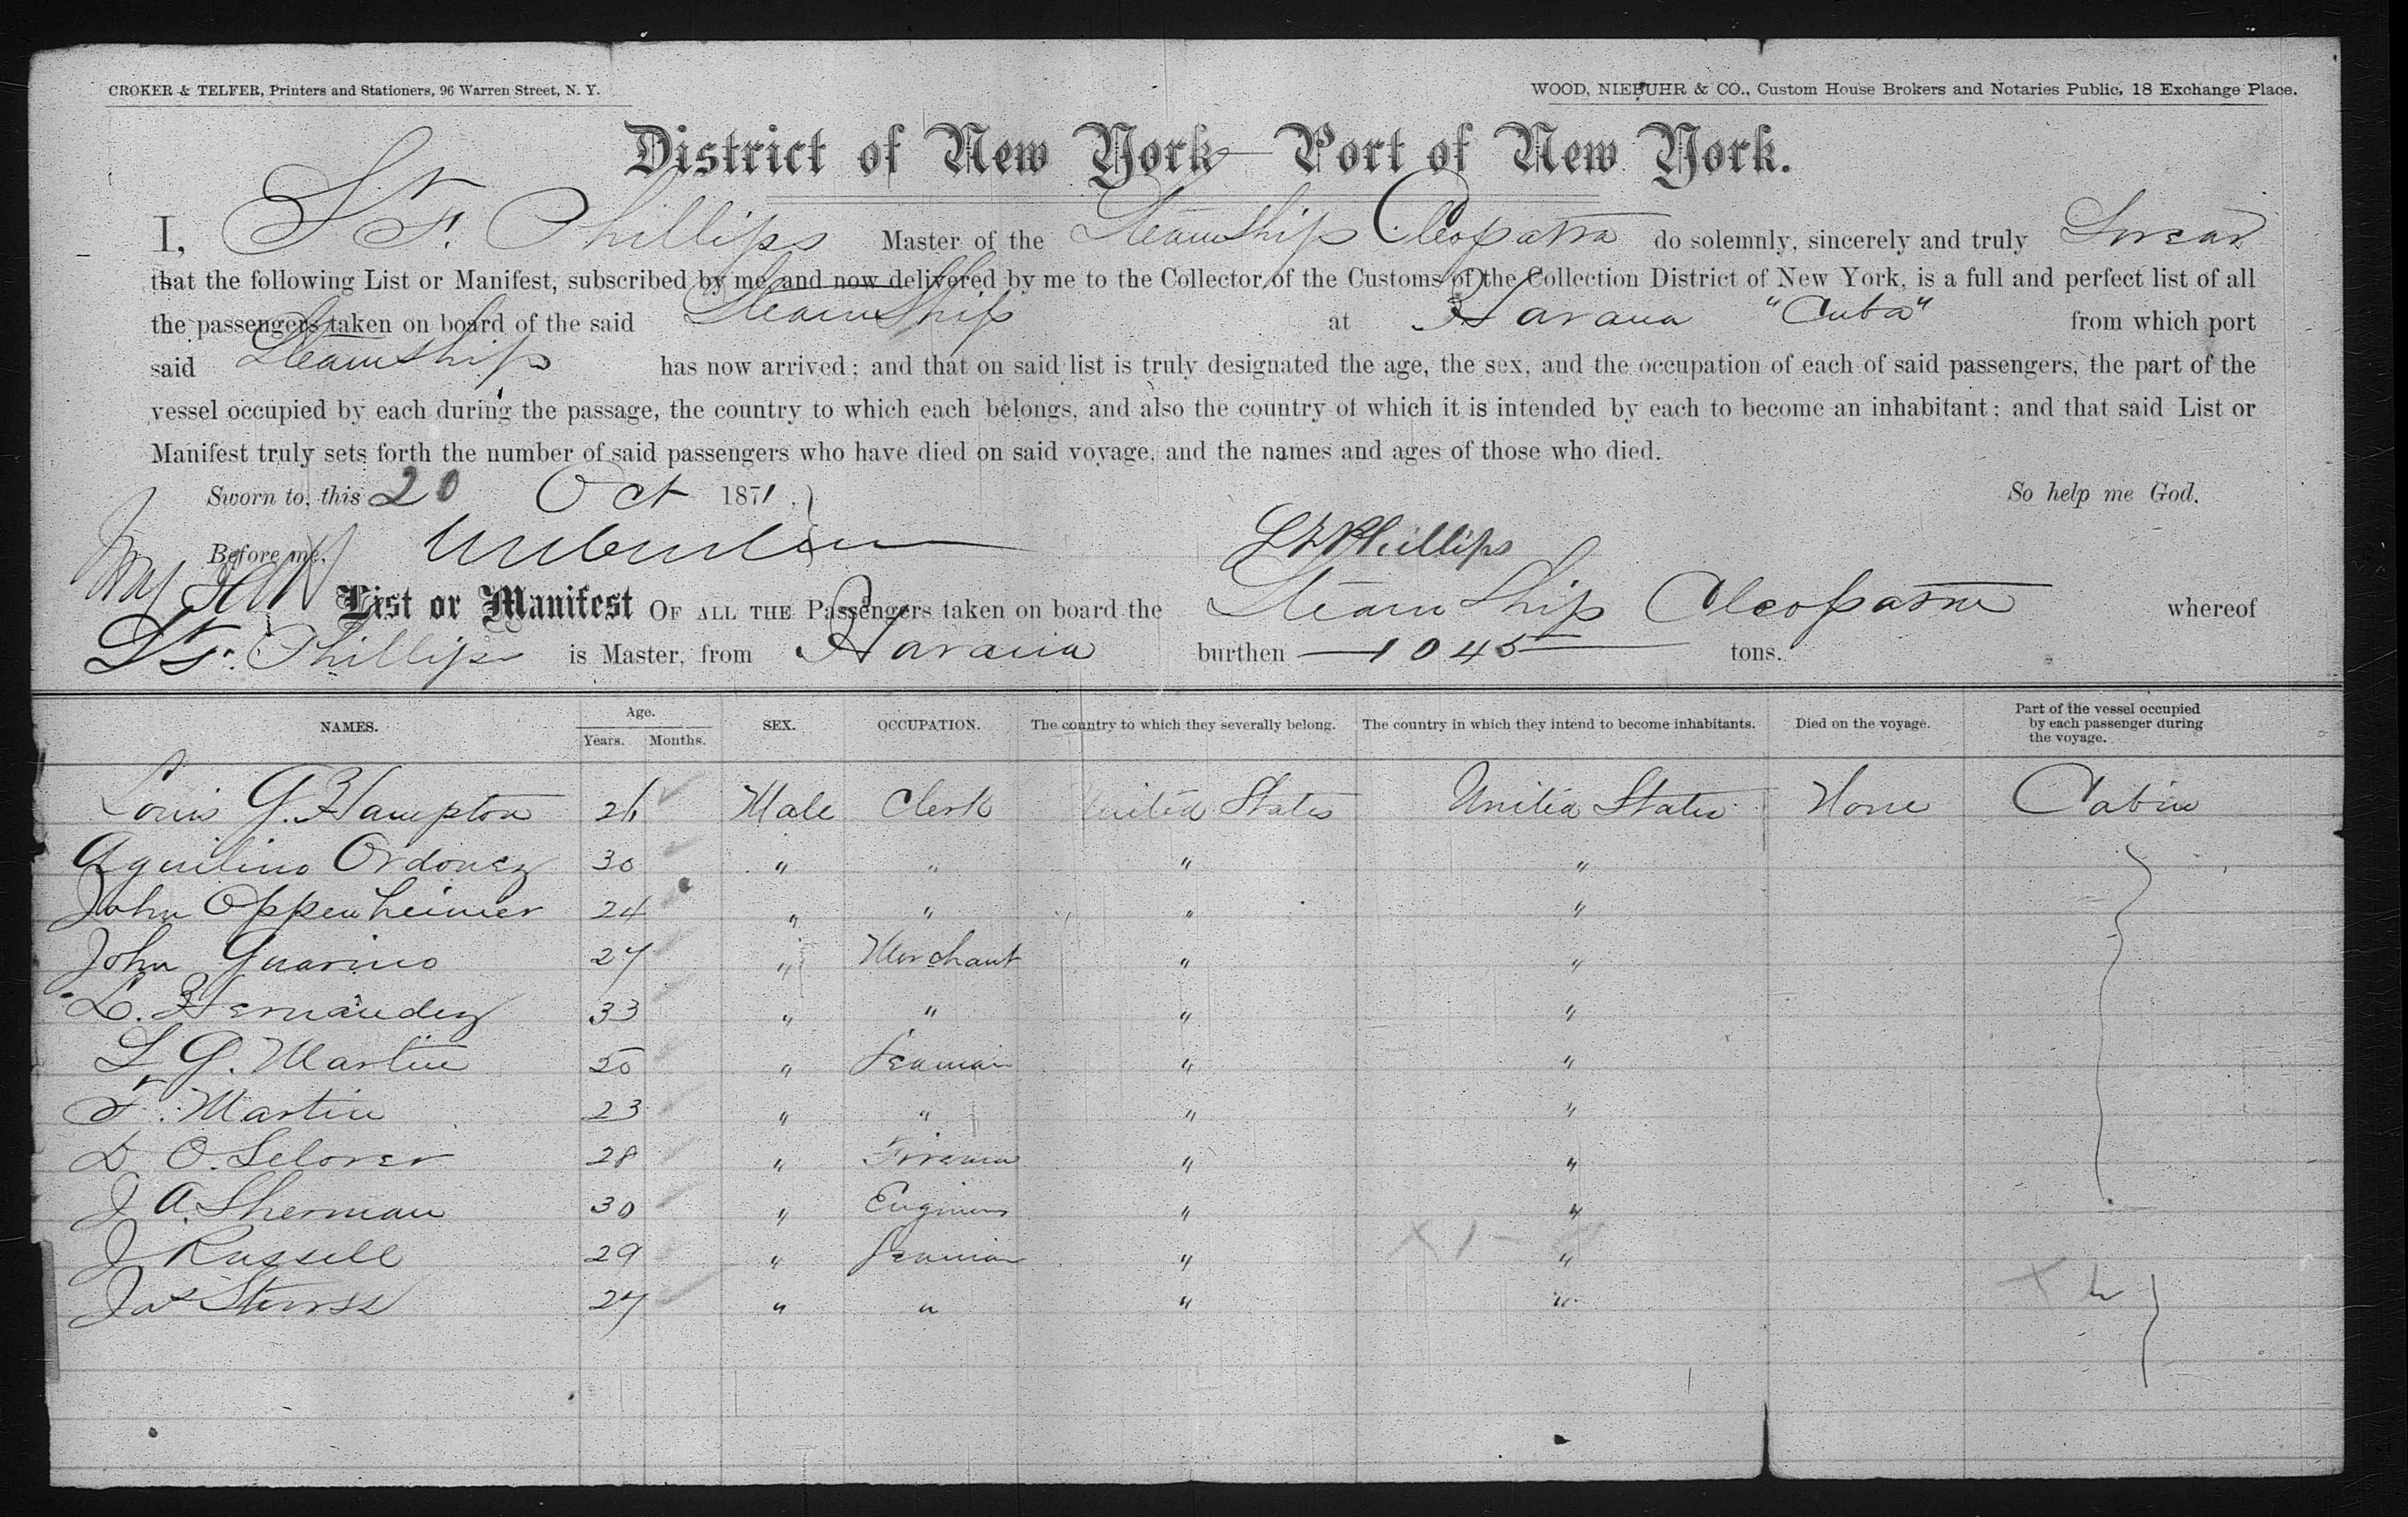 CROKER & TELFER, Printers and Stationers, 96 Warren Street, N. Y.
WOOD, NIEBUHR & CO., Custom House Brokers and Notaries Public, 18 Exchange Place.
District of New York—Port of New York.
I, S. F. Phillips Master of the Steamship Cleopatra do solemnly, sincerely and truly Swear
that the following List or Manifest, subscribed by me, and now delivered by me to the Collector of the Customs of the Collection District of New York, is a full and perfect list of all
the passengers taken on board of the said Steamship at Havana "Cuba" from which port
said Steamship has now arrived; and that on said list is truly designated the age, the sex, and the occupation of each of said passengers, the part of the
vessel occupied by each during the passage, the country to which each belongs, and also the country of which it is intended by each to become an inhabitant; and that said List or
Manifest truly sets forth the number of said passengers who have died on said voyage, and the names and ages of those who died.
Sworn to, this 20 Oct 1871. So help me God.
Before me, Phillips
List or Manifest OF ALL THE Passengers taken on board the Steam Ship Cleopatra whereof
Phillips is Master, from Havana burthen 1045 tons.
NAMES. Age. Years. Months. SEX. OCCUPATION. The country to which they severally belong. The country in which they intend to become inhabitants. Died on the voyage. Part of the vessel occupied by each passenger during the voyage.
Louis G. Hampton 26 Male Clerk United States United States None Cabin
Aquilino Ordonez 30 " " " "
John Oppenheimer 24 " " " "
John Guarino 27 " Merchant " "
L. Hernandez 33 " " " "
L G. Martin 20 " Seaman " "
F. Martin 23 " " " "
D O. Selover 28 " Fireman " "
J A. Sherman 30 " Engineer " "
J Russell 29 " Seaman " "
Jas 27 " " " "